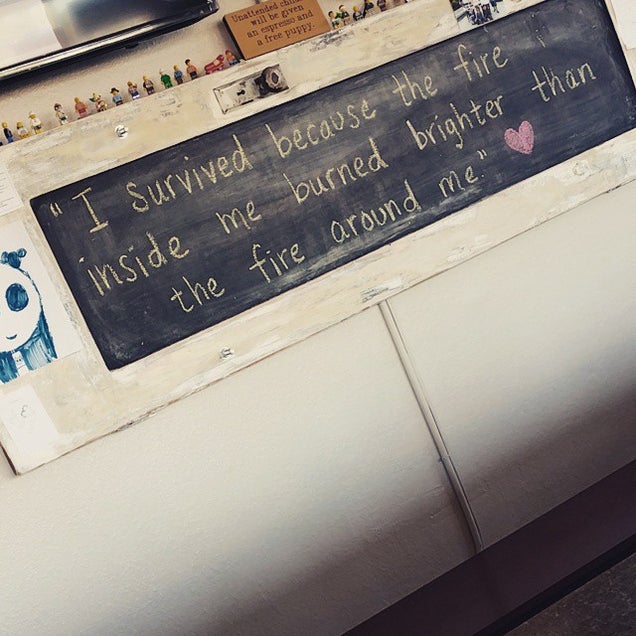 Unattended children
will be given
an espresso and
a free puppy.
"I survived because the fire
inside me burned brighter than
the fire around me."